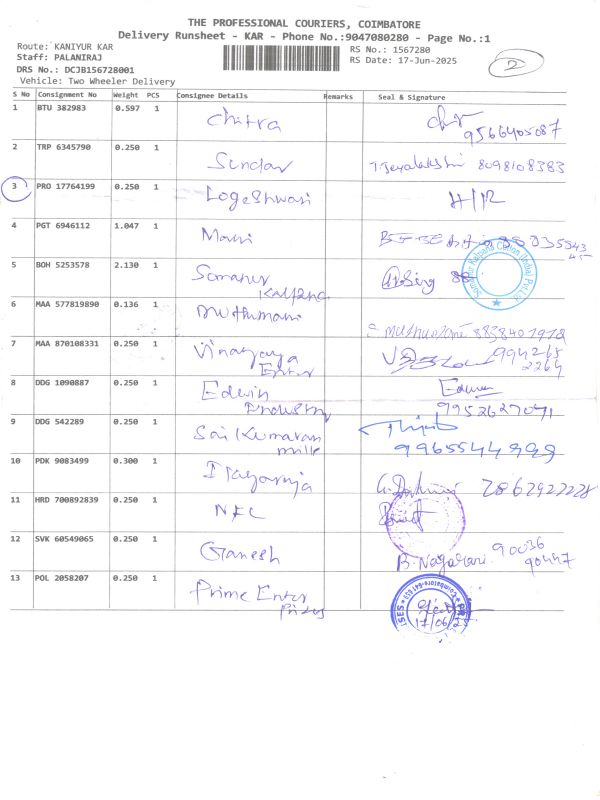 THE PROFESSIONAL COURIERS, COIMBATORE
Delivery Runsheet - KAR - Phone No.:9047080280 - Page No.:1
Route: KANIYUR KAR
RS No.: 1567280
Staff: PALANIRAJ
RS Date: 17-Jun-2025
2
DRS No.: DCJB156728001
Vehicle: Two Wheeler Delivery
S No Consignment No Weight PCS Consignee Details Remarks Seal & Signature
1 BTU 382983 0.597 1 Chitra
9566405087
2 TRP 6345790 0.250 1 Sundar T. Jeyalakshmi 8098108383
3 PRO 17764199 0.250 1 Logeshwari H/R
4 PGT 6946112 1.047 1 Mani
5 BOH 5253578 2.130 1 Somanur
Kalpana
6 MAA 577819890 0.136 1 Muthumani
7 MAA 870108331 1 0.250 Vinayaga
Enter
994265
2264
8 DDG 1090887 0.250 1 Edwin Edwin
Industry 9952627091
9 DDG 542289 0.250 1 Sai Kumaran
milk
9965544999
10 PDK 9083499 0.300 1
11 HRD 700892839 0.250 1 NFC
12 SVK 60549065 0.250 1 Ganesh B. Nagarani. 90036
90447
13 POL 2058207 0.250 1 Prime Enter
Prizes
17/06/25